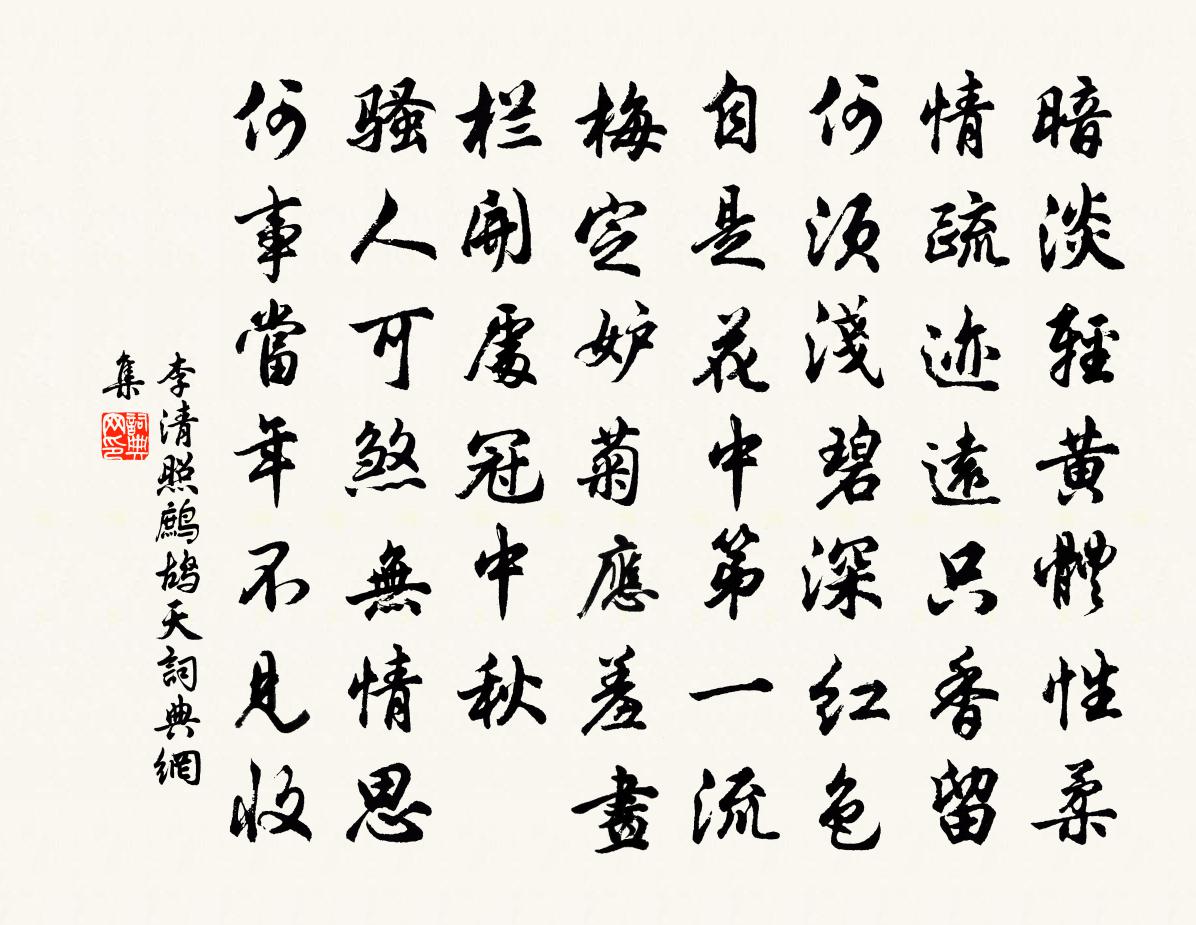 暗淡輕黄體性柔
情疏迹遠只香留
何須淺碧深红色
自是花中第一流
梅定妒菊應羞畫
栏開處冠中秋
騷人可煞無情思
何事當年不見收
李清照鷓鴣天詞典網
集
詞典
网印